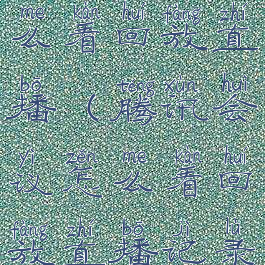 me kàn huí fàng zhí
么看回放直
bō ( téng xùn huì
播(腾讯会
yì zěn me kàn huí
议怎么看回
fàng zhí bō jì lù
放直播记录